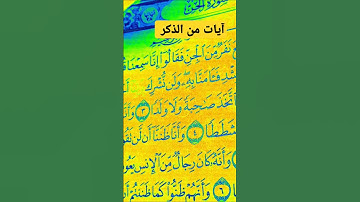 سُورَةُ الجِنّ
آيات من الذكر
نَفَرٌ مِّنَ ٱلْجِنِّ فَقَالُوٓا۟ إِنَّا سَمِعْنَا
شْدِ فَـَٔامَنَّا بِهِۦ وَلَن نُّشْرِكَ
ٱتَّخَذَ صَـٰحِبَةً وَلَا وَلَدًا ٣
شَطَطًا ٤ وَأَنَّا ظَنَنَّآ أَن لَّن تَقُو
وَأَنَّهُۥ كَانَ رِجَالٌ مِّنَ ٱلْإِنسِ يَعُو
٦ وَأَنَّهُمْ ظَنُّوا۟ كَمَا ظَنَنتُمْ أَن